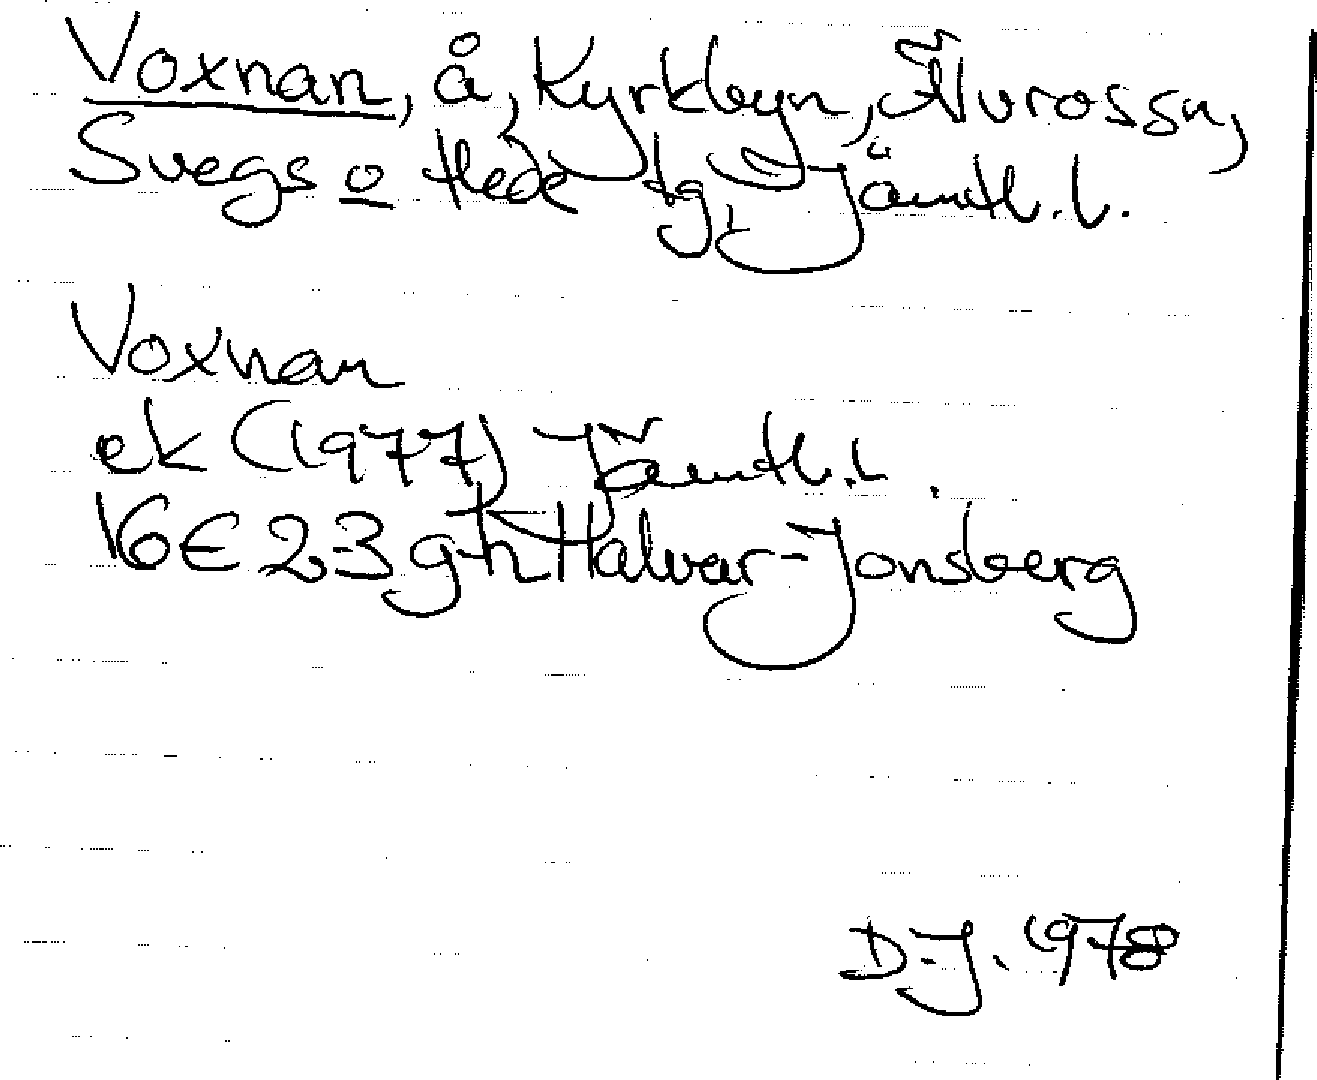 Voxnan, å, Kyrkbyn, Älvrossn,
Svegs o Hede tg, Jämtl. l.
Voxnan
ek (1977) Jämtl. l.
16E 2-3 g-h Halvar-Jonsberg
D-J. 1978